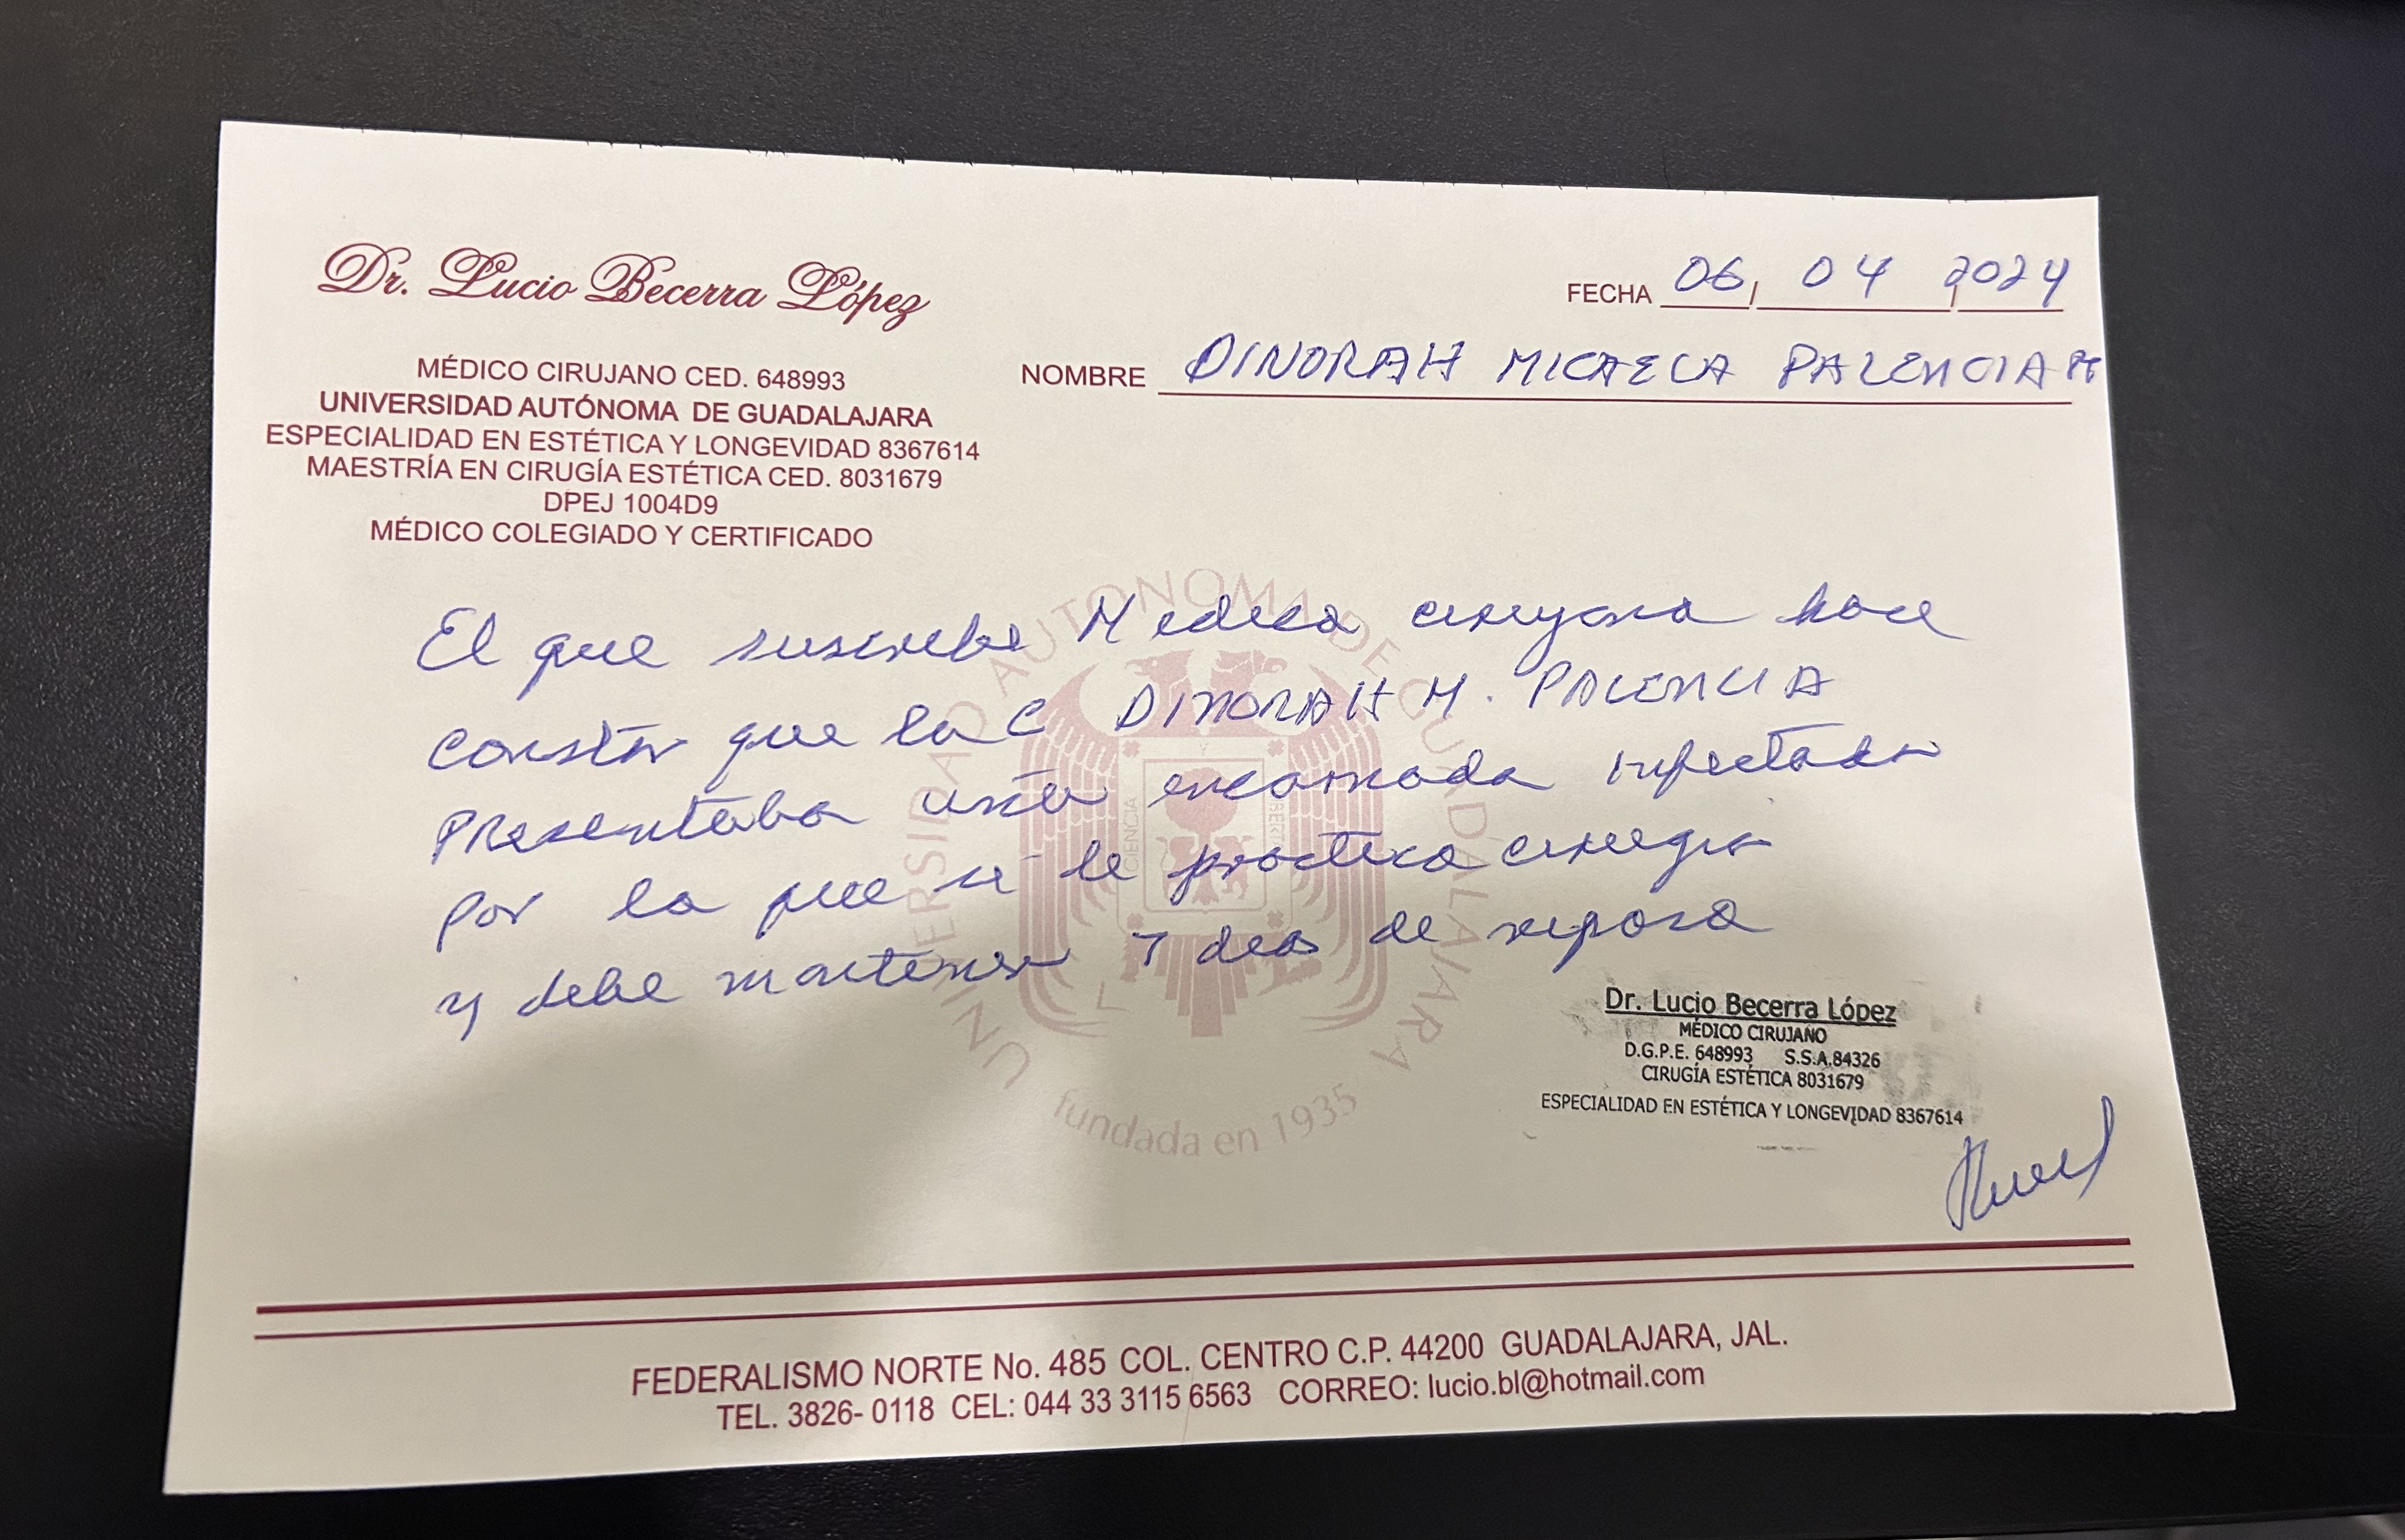 Dr. Lucio Becerra López
MÉDICO CIRUJANO CED. 648993
UNIVERSIDAD AUTÓNOMA DE GUADALAJARA
ESPECIALIDAD EN ESTÉTICA Y LONGEVIDAD 8367614
MAESTRÍA EN CIRUGÍA ESTÉTICA CED. 8031679
DPEJ 1004D9
MÉDICO COLEGIADO Y CERTIFICADO
FECHA 06/ 04 /2024
NOMBRE DINORAH MICAELA PALENCIA
El que suscribe Medico cirujano hace
constar que la C DINORAH M. PALENCIA
Presentaba uña encarnada infectada
por la que se le practico cirugia
y debe mantener 7 dias de reposo
UNIVERSIDAD AUTONOMA DE GUADALAJARA
CIENCIA
fundada en 1935
Dr. Lucio Becerra López
MÉDICO CIRUJANO
D.G.P.E. 648993 S.S.A.84326
CIRUGÍA ESTÉTICA 8031679
ESPECIALIDAD EN ESTÉTICA Y LONGEVIDAD 8367614
FEDERALISMO NORTE No. 485 COL. CENTRO C.P. 44200 GUADALAJARA, JAL.
TEL. 3826- 0118 CEL: 044 33 3115 6563 CORREO: lucio.bl@hotmail.com